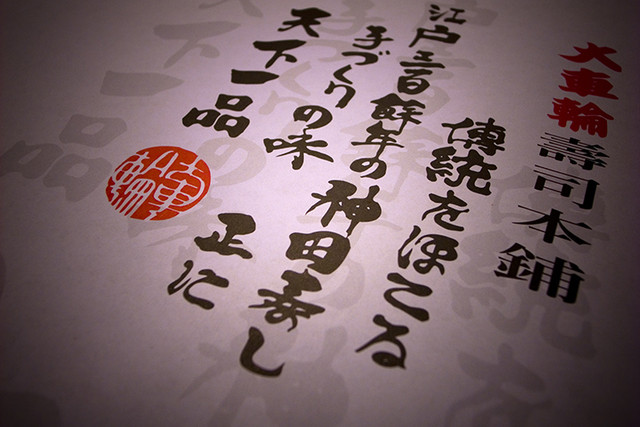 大車輪壽司本鋪
傳統をほこる
江戸三百餘年の神田寿し
手づくりの味 正に
天下一品